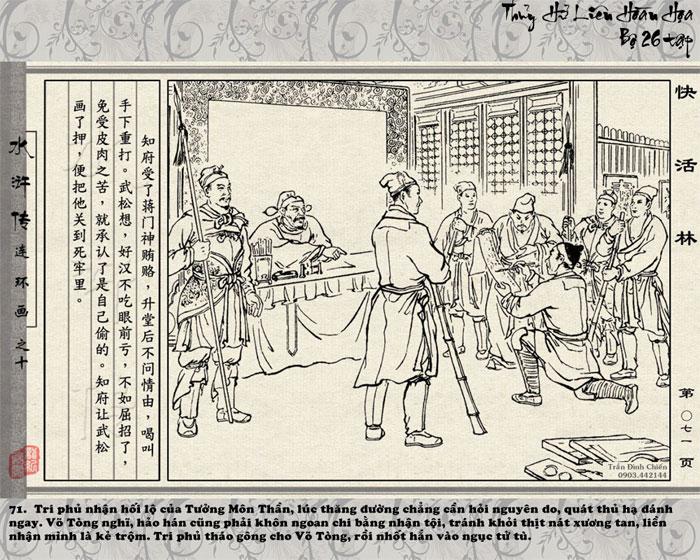 Thủy Hử Liên Hoàn Họa
Bộ 26 tập
快活林
水浒传连环画之十
知府受了蒋门神贿赂，升堂后不问情由，喝叫
手下重打。武松想，好汉不吃眼前亏，不如屈招了，
免受皮肉之苦，就承认了是自己偷的。知府让武松
画了押，便把他关到死牢里。
第〇七一页
Trần Đình Chiến
0903.442144
71. Tri phủ nhận hối lộ của Tưởng Môn Thần, lúc thăng đường chẳng cần hỏi nguyên do, quát thủ hạ đánh
ngay. Võ Tòng nghĩ, hảo hán cũng phải khôn ngoan chi bằng nhận tội, tránh khỏi thịt nát xương tan, liền
nhận mình là kẻ trộm. Tri phủ tháo gông cho Võ Tòng, rồi nhốt hắn vào ngục tử tù.